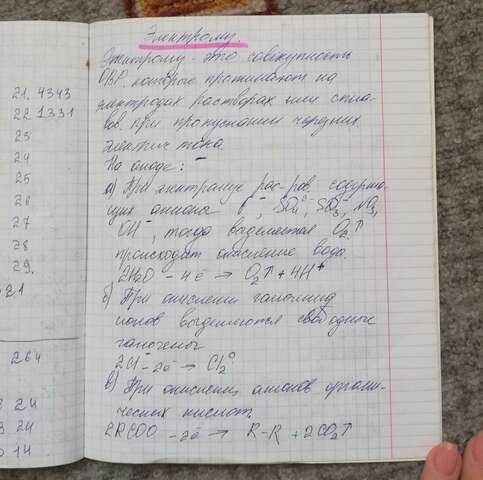 21. 4343
22 1331
23
24
25
26
27
28
29.
21
264
24
24
14
Электролиз.
Электролиз - это совокупность
ОВР. которые протекают на
электродах растворах или спла-
вов. При пропускании через них
электрич тока.
На аноде: -
а) При электролизе рас-ров. содержа-
щих анионы F⁻, SO₄⁻, SO₃⁻, NO₃,
OH⁻, тогда выделяется O₂↑
происходит окисление воды.
2H₂O - 4ē → O₂↑ + 4H⁺
б) При окислении галогенид
ионов выделяются свободные
галогены
2Cl⁻ - 2ē → Cl₂⁰
в) При окислении анионов органи-
ческих кислот.
2RCOO - 2ē → R-R + 2CO₂↑